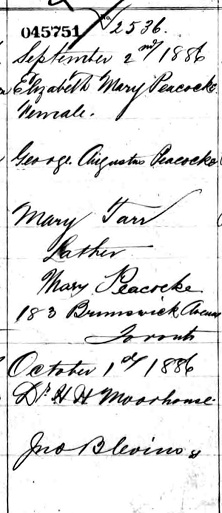 045751 No 2536.
September 2nd/1886
Elizabeth Mary Peacocke
Female.
George Augustus Peacocke
Mary Tarr
Father
Mary Peacocke
183 Brunswick Avenue
Toronto
October 1st/1886
Dr. H H Moorhouse
Jno Blevins